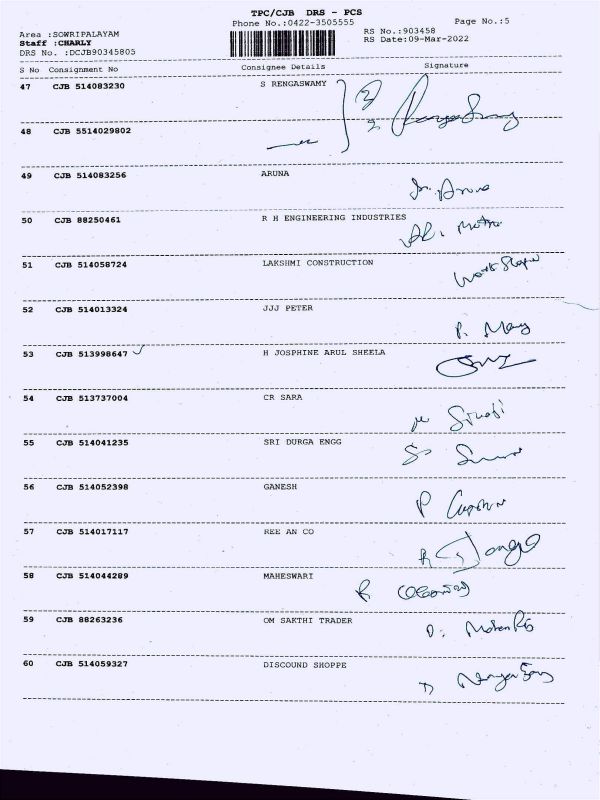 TPC/CJB DRS - PCS
Phone No.:0422-3505555
Page No.:5
Area :SOWRIPALAYAM
RS No.:903458
Staff :CHARLY
RS Date:09-Mar-2022
DRS No. :DCJB90345805
S No Consignment No Consignee Details Signature
47 CJB 514083230 S RENGASWAMY
48 CJB 5514029802
49 CJB 514083256 ARUNA
Aruna
50 CJB 88250461 R H ENGINEERING INDUSTRIES
51 CJB 514058724 LAKSHMI CONSTRUCTION
52 CJB 514013324 JJJ PETER
P. Mary
53 CJB 513998647 H JOSPHINE ARUL SHEELA
54 CJB 513737004 CR SARA
55 CJB 514041235 SRI DURGA ENGG
56 CJB 514052398 GANESH
P
57 CJB 514017117 REE AN CO
58 CJB 514044289 MAHESWARI
R
59 CJB 88263236 OM SAKTHI TRADER
60 CJB 514059327 DISCOUND SHOPPE